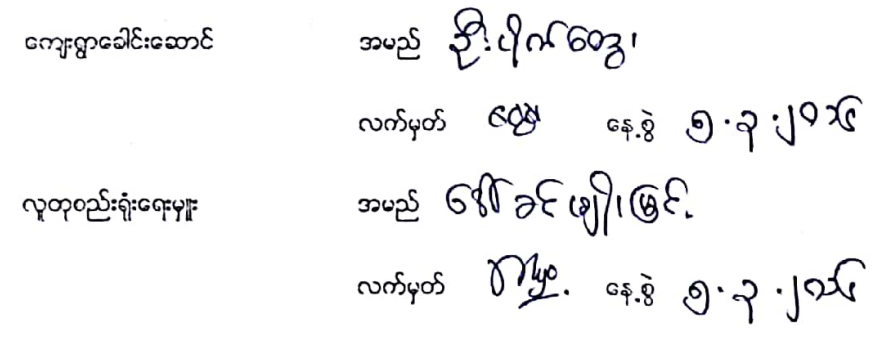 ကျေးရွာခေါင်းဆောင် အမည် ဦးပိုက်ထွေး
လက်မှတ် ထွေး နေ့စွဲ ၅.၃.၂၀၁၆
လူထုစည်းရုံးရေးမှူး အမည် ဒေါ်ခင်မျိုးမြင့်
လက်မှတ် Myo. နေ့စွဲ ၅.၃.၂၀၁၆